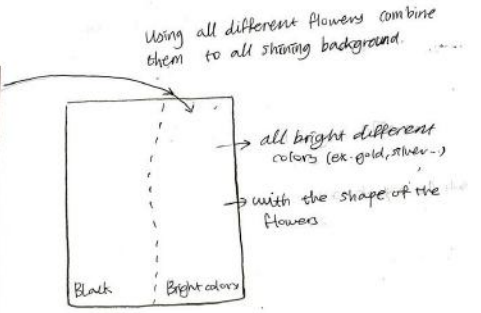 Using all different flowers combine
them to all shining background.
all bright different
colors (ex. gold, silver...)
with the shape of the
flowers
Black
Bright colors